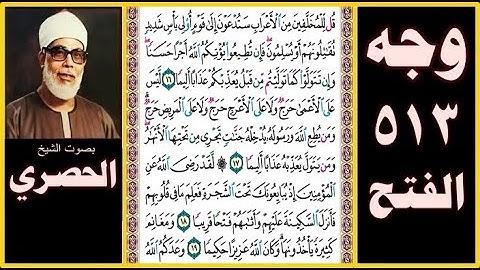 قُل لِّلْمُخَلَّفِينَ مِنَ ٱلْأَعْرَابِ سَتُدْعَوْنَ إِلَىٰ قَوْمٍ أُو۟لِى بَأْسٍ شَدِيدٍ
تُقَـٰتِلُونَهُمْ أَوْ يُسْلِمُونَ ۖ فَإِن تُطِيعُوا۟ يُؤْتِكُمُ ٱللَّهُ أَجْرًا حَسَنًا ۖ
وَإِن تَتَوَلَّوْا۟ كَمَا تَوَلَّيْتُم مِّن قَبْلُ يُعَذِّبْكُمْ عَذَابًا أَلِيمًا ١٦ لَّيْسَ
عَلَى ٱلْأَعْمَىٰ حَرَجٌ وَلَا عَلَى ٱلْأَعْرَجِ حَرَجٌ وَلَا عَلَى ٱلْمَرِيضِ حَرَجٌ ۗ
وَمَن يُطِعِ ٱللَّهَ وَرَسُولَهُۥ يُدْخِلْهُ جَنَّـٰتٍ تَجْرِى مِن تَحْتِهَا ٱلْأَنْهَـٰرُ ۖ
وَمَن يَتَوَلَّ يُعَذِّبْهُ عَذَابًا أَلِيمًا ١٧ ۞ لَّقَدْ رَضِىَ ٱللَّهُ عَنِ
ٱلْمُؤْمِنِينَ إِذْ يُبَايِعُونَكَ تَحْتَ ٱلشَّجَرَةِ فَعَلِمَ مَا فِى قُلُوبِهِمْ
فَأَنزَلَ ٱلسَّكِينَةَ عَلَيْهِمْ وَأَثَـٰبَهُمْ فَتْحًا قَرِيبًا ١٨ وَمَغَانِمَ
كَثِيرَةً يَأْخُذُونَهَا ۗ وَكَانَ ٱللَّهُ عَزِيزًا حَكِيمًا ١٩ وَعَدَكُمُ ٱللَّهُ
وجه
٥١٣
الفتح
بصوت الشيخ
الحصري